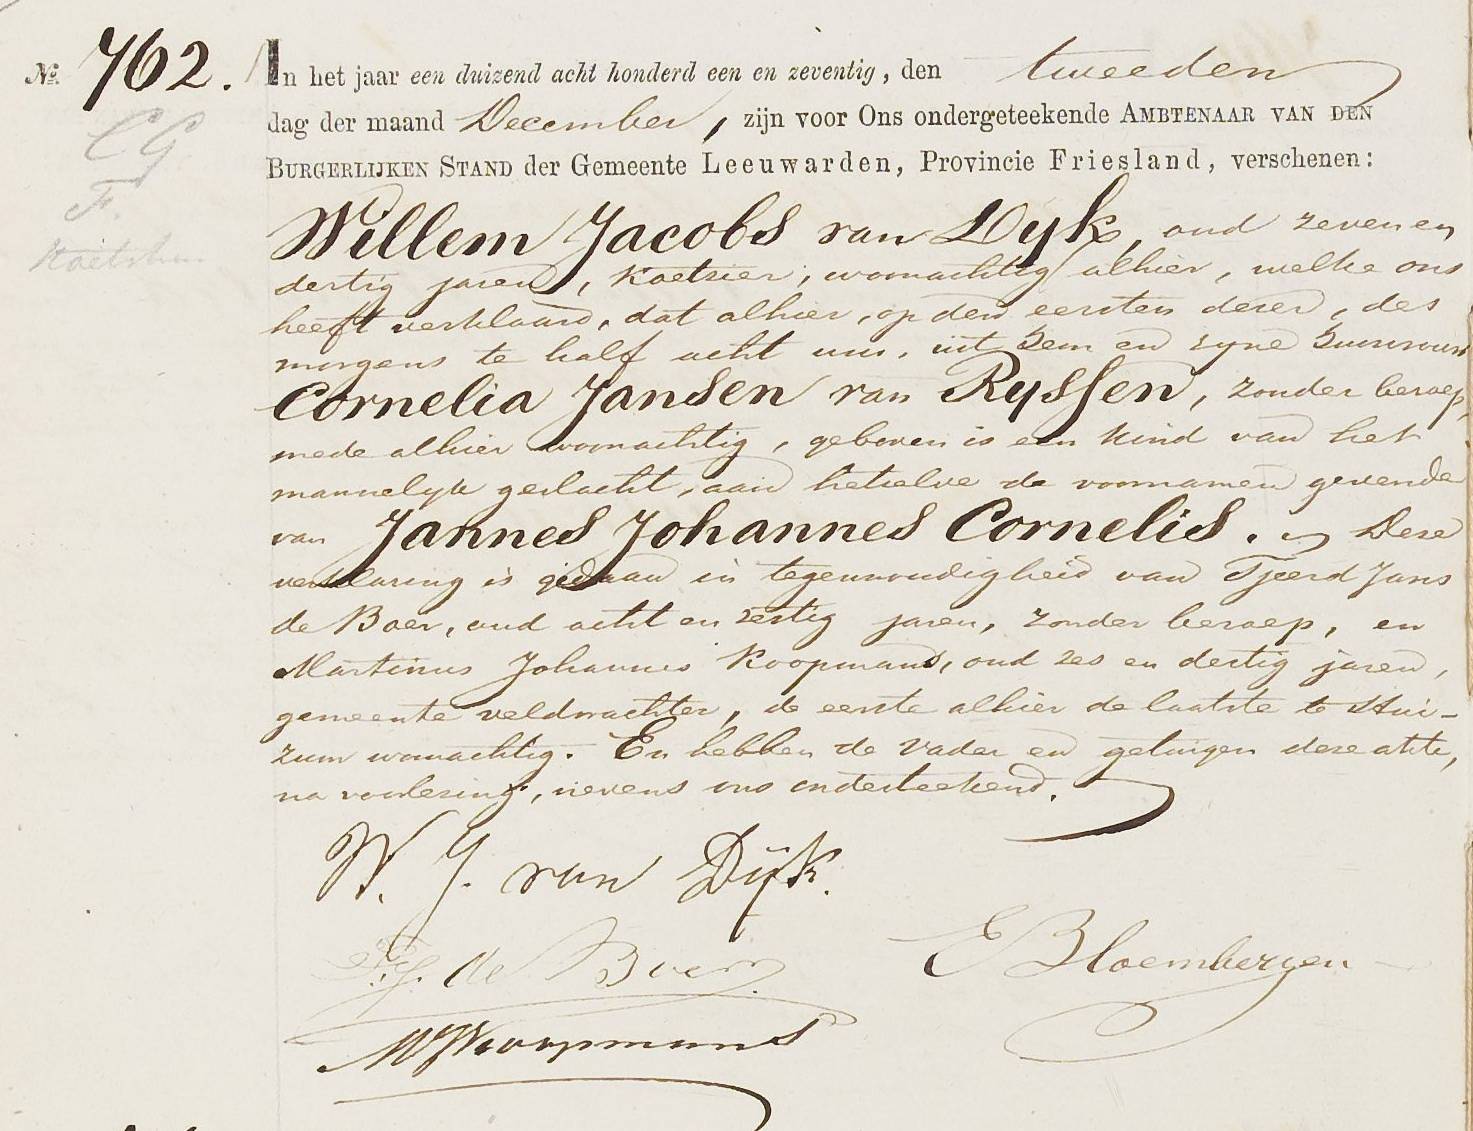 No. 762.
In het jaar een duizend acht honderd een en zeventig, den tweeden
dag der maand December, zijn voor Ons ondergeteekende AMBTENAAR VAN DEN
BURGERLIJKEN STAND der Gemeente Leeuwarden, Provincie Friesland, verschenen:
Willem Jacobs van Dyk, oud zeven en
dertig jaren, Koetsier, woonachtig alhier, welke ons
heeft verklaard, dat alhier, op den eersten dezer, des
morgens te half acht uur, uit hem en zyne huisvrouw
Cornelia Jansen van Ryssen, zonder beroep
mede alhier woonachtig, geboren is een kind van het
mannelyk geslacht, aan hetzelve de voornamen gevende
van Jannes Johannes Cornelis. Deze
verklaring is gedaan in tegenwoordigheid van Tjeerd Jans
de Boer, oud acht en zestig jaren, zonder beroep, en
Martinus Johannes Koopmans, oud zes en dertig jaren,
gemeente veldwachter, de eerste alhier de laatste te Hui-
zum woonachtig. En hebben de vader en getuigen deze akte,
na voorlezing, nevens ons onderteekend.
W. J. van Dijk.
T. J. de Boer.
E Bloembergen
M J Koopmans
C G
F.